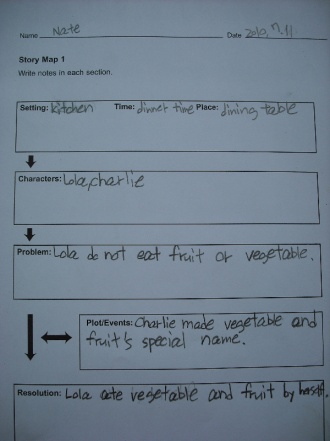 Name Nate Date 2010. 7. 11
Story Map 1
Write notes in each section.
Setting: kitchen Time: dinner time Place: dining table
Characters: Lola, charlie
Problem: Lola do not eat fruit or vegetable.
Plot/Events: Charlie made vegetable and
fruit's special name.
Resolution: Lola ate vegetable and fruit by herself.